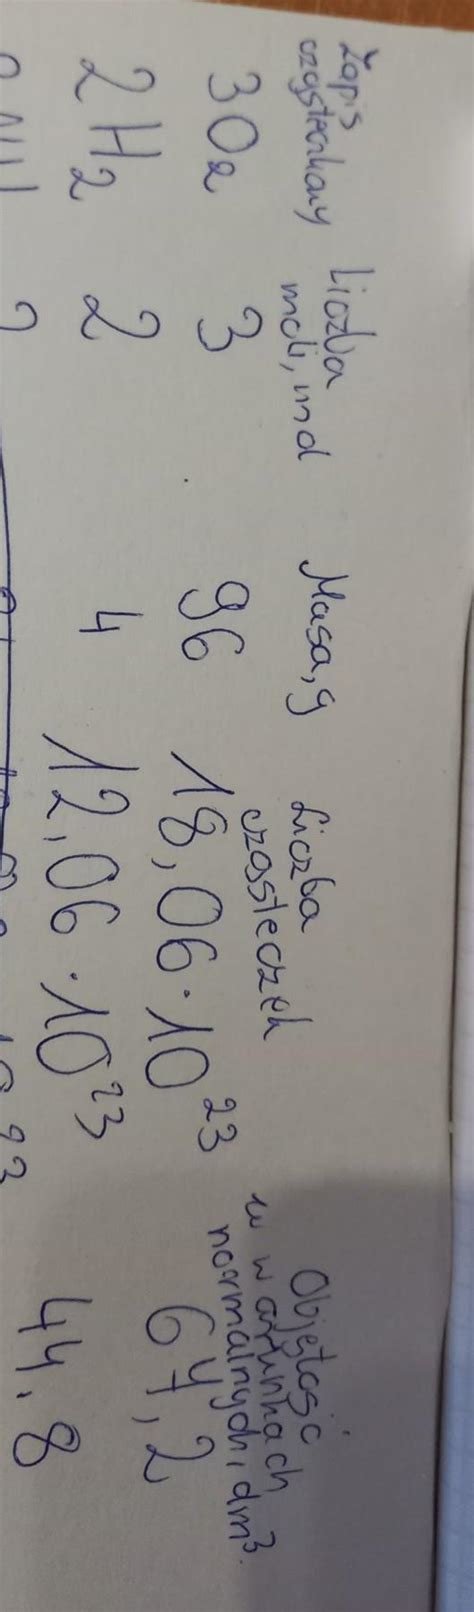 Zapis cząsteczkowy
Liczba moli, mol
Masa, g
Liczba cząsteczek
Objętość w warunkach normalnych, dm³.
3O₂ 3 96 18,06·10²³ 67,2
2H₂ 2 4 12,06·10²³ 44.8